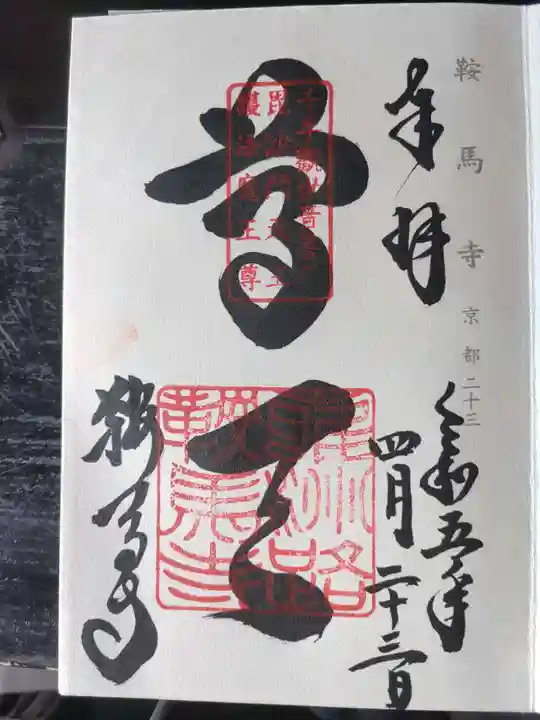 鞍馬寺 京都二十三
奉拝
令和五年
四月二十三日
尊天
千手観世音菩薩
毘沙門天王
護法魔王尊
鞍馬寺